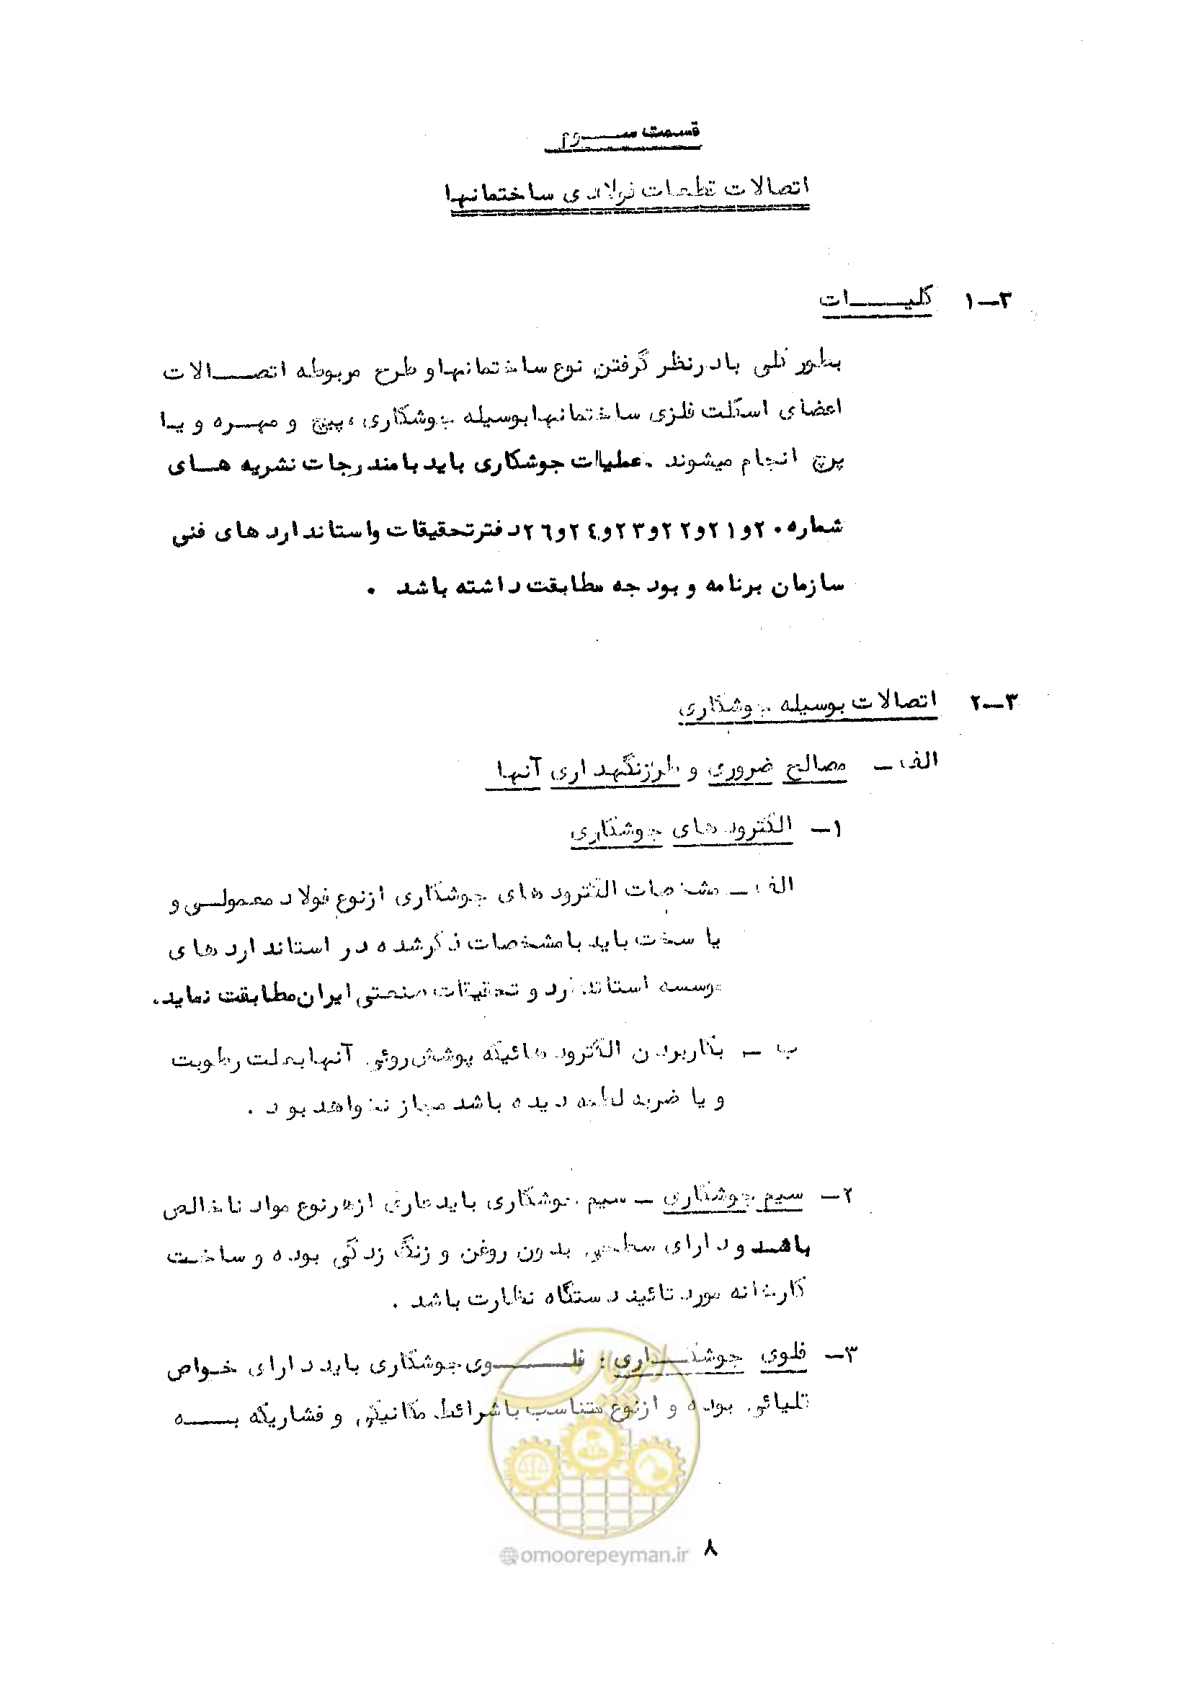 قسمت سوم
اتصالات قطعات فولادی ساختمانها
۳-۱ کلیات
بطور کلی با درنظر گرفتن نوع ساختمانها و طرح مربوطه اتصالات
اعضای اسکلت فلزی ساختمانها بوسیله جوشکاری ، پیچ و مهره و یا
پرچ انجام میشوند . عملیات جوشکاری باید با مندرجات نشریه های
شماره ۲۰ و ۲۱ و ۲۲ و ۲۳ و ۲۴ و ۲۶ دفتر تحقیقات و استانداردهای فنی
سازمان برنامه و بودجه مطابقت داشته باشد .
۳-۲ اتصالات بوسیله جوشکاری
الف - مصالح ضروری و طرز نگهداری آنها
۱- الکترودهای جوشکاری
الف - مشخصات الکترودهای جوشکاری از نوع فولاد معمولی و
یا سخت باید با مشخصات ذکر شده در استانداردهای
موسسه استاندارد و تحقیقات صنعتی ایران مطابقت نماید.
ب - بکاربردن الکترودهائیکه پوشش روئی آنها بعلت رطوبت
و یا ضربه لطمه دیده باشد مجاز نخواهد بود .
۲- سیم جوشکاری - سیم جوشکاری باید عاری از هر نوع مواد ناخالص
باشد و دارای سطحی بدون روغن و زنگ زدگی بوده و ساخت
کارخانه مورد تائید دستگاه نظارت باشد .
۳- فلوی جوشکاری : فلوی جوشکاری باید دارای خواص
قلیائی بوده و از نوع متناسب با شرائط مکانیکی و فشاریکه به
امور پیمان
@omoorepeyman.ir
۸